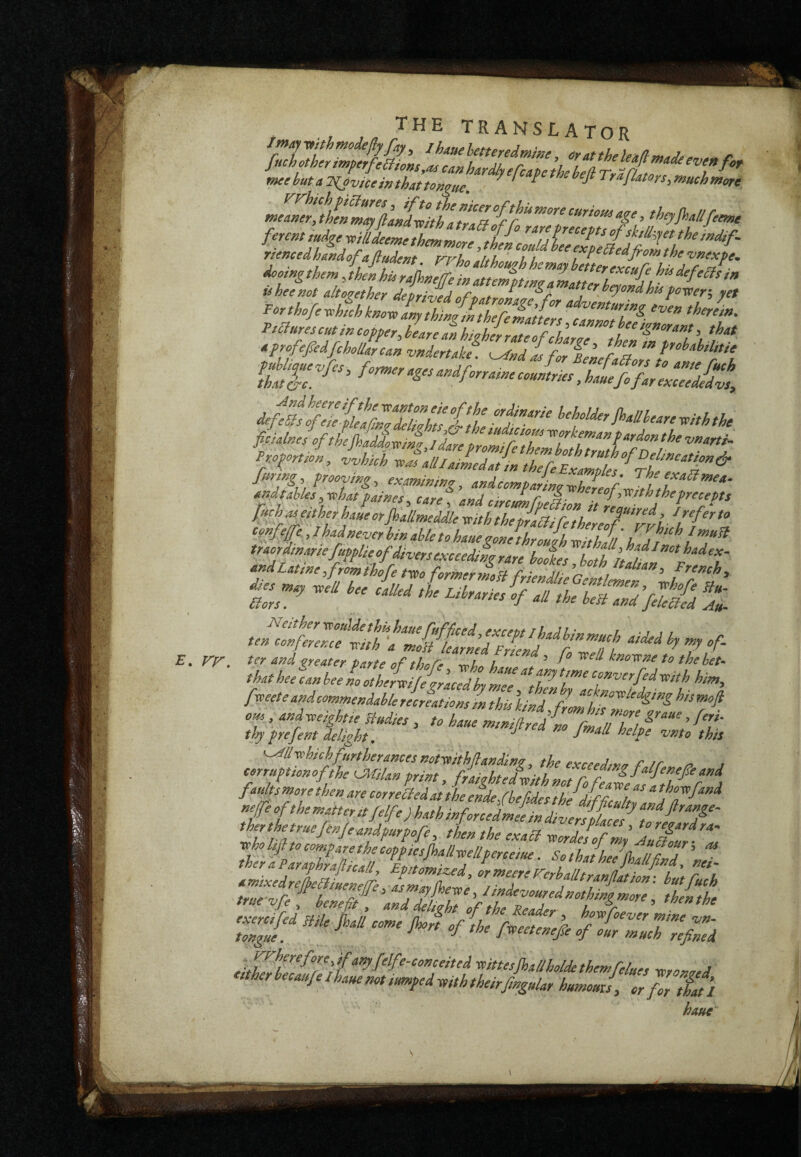 THE TRANSLATOR
I may with modesty say, I haue bettered mine, or at the least made even for
such other imperfections, as can hardly escape the best Trãslators, much more
mee but a Novice in that tongue.
VVhich pictures, if to the nicer of this more curious age, they shall seeme
meaner, then may stand with a tract of so rare precepts of skill: yet the indif-
ferent iudge will deeme them more, then could bee expected from the vnexpe-
rienced hand of a student. VVho although he may better excuse his defects in
dooing them, then his rashnesse in attempting a matter beyond his power; yet
is hee not altogether deprived of patronage, for adventuring even therein.
For those which know any thing in these matters, cannot bee ignorant, that
Pictures cut in copper, beare an higher rate of charge, then in probabilitie
a professed schollar can vndertake. And as for Benefactors to anie such
publique vses, former ages and forraine countries, haue so far exceeded vs,
that &c.
And heere if the wanton eie of the ordinarie beholder shall beare with the
defects of eie-pleasing delights, & the iudicious workeman pardon the vnarti-
ficialnes of the shaddowing, I dare promise them both truth of Delineation &
Proportion, vvhich was all I aimed at in these Examples. The exact mea-
suring, prooving, examining, and comparing whereof, with the precepts
and tables, what paines, care, and circumspection it required, I refer to
such as either haue or shall meddle with the practise thereof. VVhich I must
confesse, I had never bin able to haue gone through withall, had I not had ex-
traordinarie supplie of divers exceeding rare bookes, both Italian, French,
and Latine, from those two former most friendlie Gentlemen, whose Stu-
dies may well bee called the Libraries of all the best and selected Au-
ctors.
Neither woulde this haue sufficed, except I had bin much aided by my of-
ten conference with a most learned Friend, so well knowne to the bet-
E. VV. ter and greater parte of those, who haue at any time conversed with him,
that hee can bee no otherwise graced by mee, then by acknowledging his most
sweete and commendable recreations in this kind, from his more graue, seri-
ous, and weightie studies, to haue ministred no small helpe vnto this
thy present delight.
All which furtherances notwithstanding, the exceeding falsenesse and
corruption of the Milan print, fraighted with not so feawe as a thowsand
faults more then are corrected at the ende, (besides the difficulty and strange-
nesse of the matter it selfe) hath inforced mee in divers places, to regard ra-
ther the true sense and purpose, then the exact wordes of my Auctour; as
who list to compare the coppies shall well perceiue. So that hee shall find, nei-
ther a Paraphrasticall, Epitomized, or meere Verball translation: but such
a mixed respectiuenesse, as may shewe, I indevoured nothing more, then the
true vse, benefit, and delight of the Reader, howsoever mine vn-
exercised stile shall come short of the sweetenesse of our much refined
tongue.
VVherefore, if any selfe-conceited wittes shall holde themselues wronged,
either because I haue not iumped with their singular humours, or for that I
haue